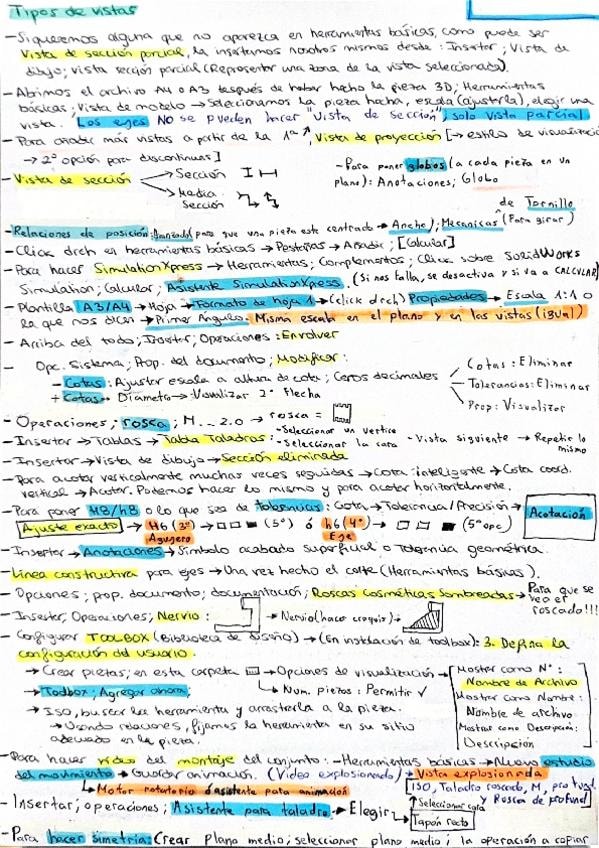 Tipos de vistas
- Si queremos alguna que no aparezca en herramientas básicas, como puede ser
Vista de sección parcial, la insertamos nosotros mismos desde: Insertar; Vista de
dibujo; vista sección parcial (Representar una zona de la vista seleccionada).
- Abrimos el archivo A4 o A3 después de haber hecho la pieza 3D; Herramientas
básicas; Vista de modelo → Seleccionamos la pieza hecha, escala (ajustarla), elegir una
vista. Los ejes NO se pueden hacer "Vista de sección", solo Vista parcial
- Para añadir más vistas a partir de la 1ª ↗ Vista de proyección [→ estilo de visualización
→ 2ª opción para discontinuas]
- Vista de sección → Sección
→ Media Sección
- Para poner globos (a cada pieza en un
plano): Anotaciones; Globo
de Tornillo
- Relaciones de posición: Avanzadas para que una pieza este centrado → Ancho; Mecánicas (Para girar)
- Click drch en herramientas básicas → Pestañas → Añadir; [Calcular]
- Para hacer SimulationXpress → Herramientas; Complementos; Click sobre SolidWorks
Simulation; Calcular; Asistente SimulationXpress. (Si nos falla, se desactiva y si va a CALCULAR)
- Plantilla A3/A4 → Hoja → Formato de hoja 1 → (click drch) Propiedades → Escala 1:1 o
la que nos dicen → Primer Ángulo. Misma escala en el plano y en las vistas (igual)
- Arriba del todo; Insertar; Operaciones: Envolver
- Opc. Sistema; Prop. del documento; Modificar:
- Cotas: Ajustar escala a altura de cota; Ceros decimales
Cotas: Eliminar
Tolerancias: Eliminar
Prop: Visualizar
+ Cotas → Diametro → Visualizar 2ª Flecha
- Operaciones; rosca; M... 2.0 → rosca =
- Insertar → Tablas → Tabla Taladros: - Seleccionar un vertice
- Seleccionar la cara - Vista siguiente → Repetir lo mismo
- Insertar → Vista de dibujo → Sección eliminada
- Para acotar verticalmente muchas veces seguidas → Cota inteligente → Cota coord.
vertical → Acotar. Podemos hacer lo mismo y para acotar horizontalmente.
- Para poner H8/h8 o lo que sea de Tolerancias: Cota → Tolerancia/Precisión → Acotación
Ajuste exacto → H6 (3º) → (5º) ó h6 (4º) → (5º opc)
Agujero
Eje
- Insertar → Anotaciones → Símbolo acabado superficial o Tolerancia geométrica.
- Línea constructiva para ejes → Una vez hecho el corte (Herramientas básicas).
- Opciones; prop. documento; documentación; Roscas Cosméticas Sombreadas → Para que se
vea el
roscado!!!
- Insertar; Operaciones; Nervio: → Nervio (hacer croquis) →
- Configurar TOOLBOX (Biblioteca de diseño) → (En instalación de toolbox): 3. Defina la
configuración del usuario.
→ Crear piezas, en esta carpeta → Opciones de visualización →
Mostrar como Nº:
Nombre de Archivo
Mostrar como Nombre:
Nombre de archivo
Mostrar como Descripción:
Descripción
→ Toolbox; Agregar ahora; ↳ Num. piezas: Permitir ✓
→ ISO, buscar la herramienta y arrastrarla a la pieza.
→ Usando relaciones, fijamos la herramienta en su sitio
adecuado en la pieza.
- Para hacer video del montaje del conjunto: - Herramientas básicas → Nuevo estudio
del movimiento → Guardar animación. (Video explosionado) → Vista explosionada
↳ Motor rotatorio o asistente para animación
[ISO, Taladro roscado, M, profund.
y Rosca de profund]
- Insertar; operaciones; Asistente para taladro → Elegir
↑ Seleccionar cara
→ Tapón recto
- Para hacer simetria: Crear plano medio; seleccionar plano medio; la operación a copiar